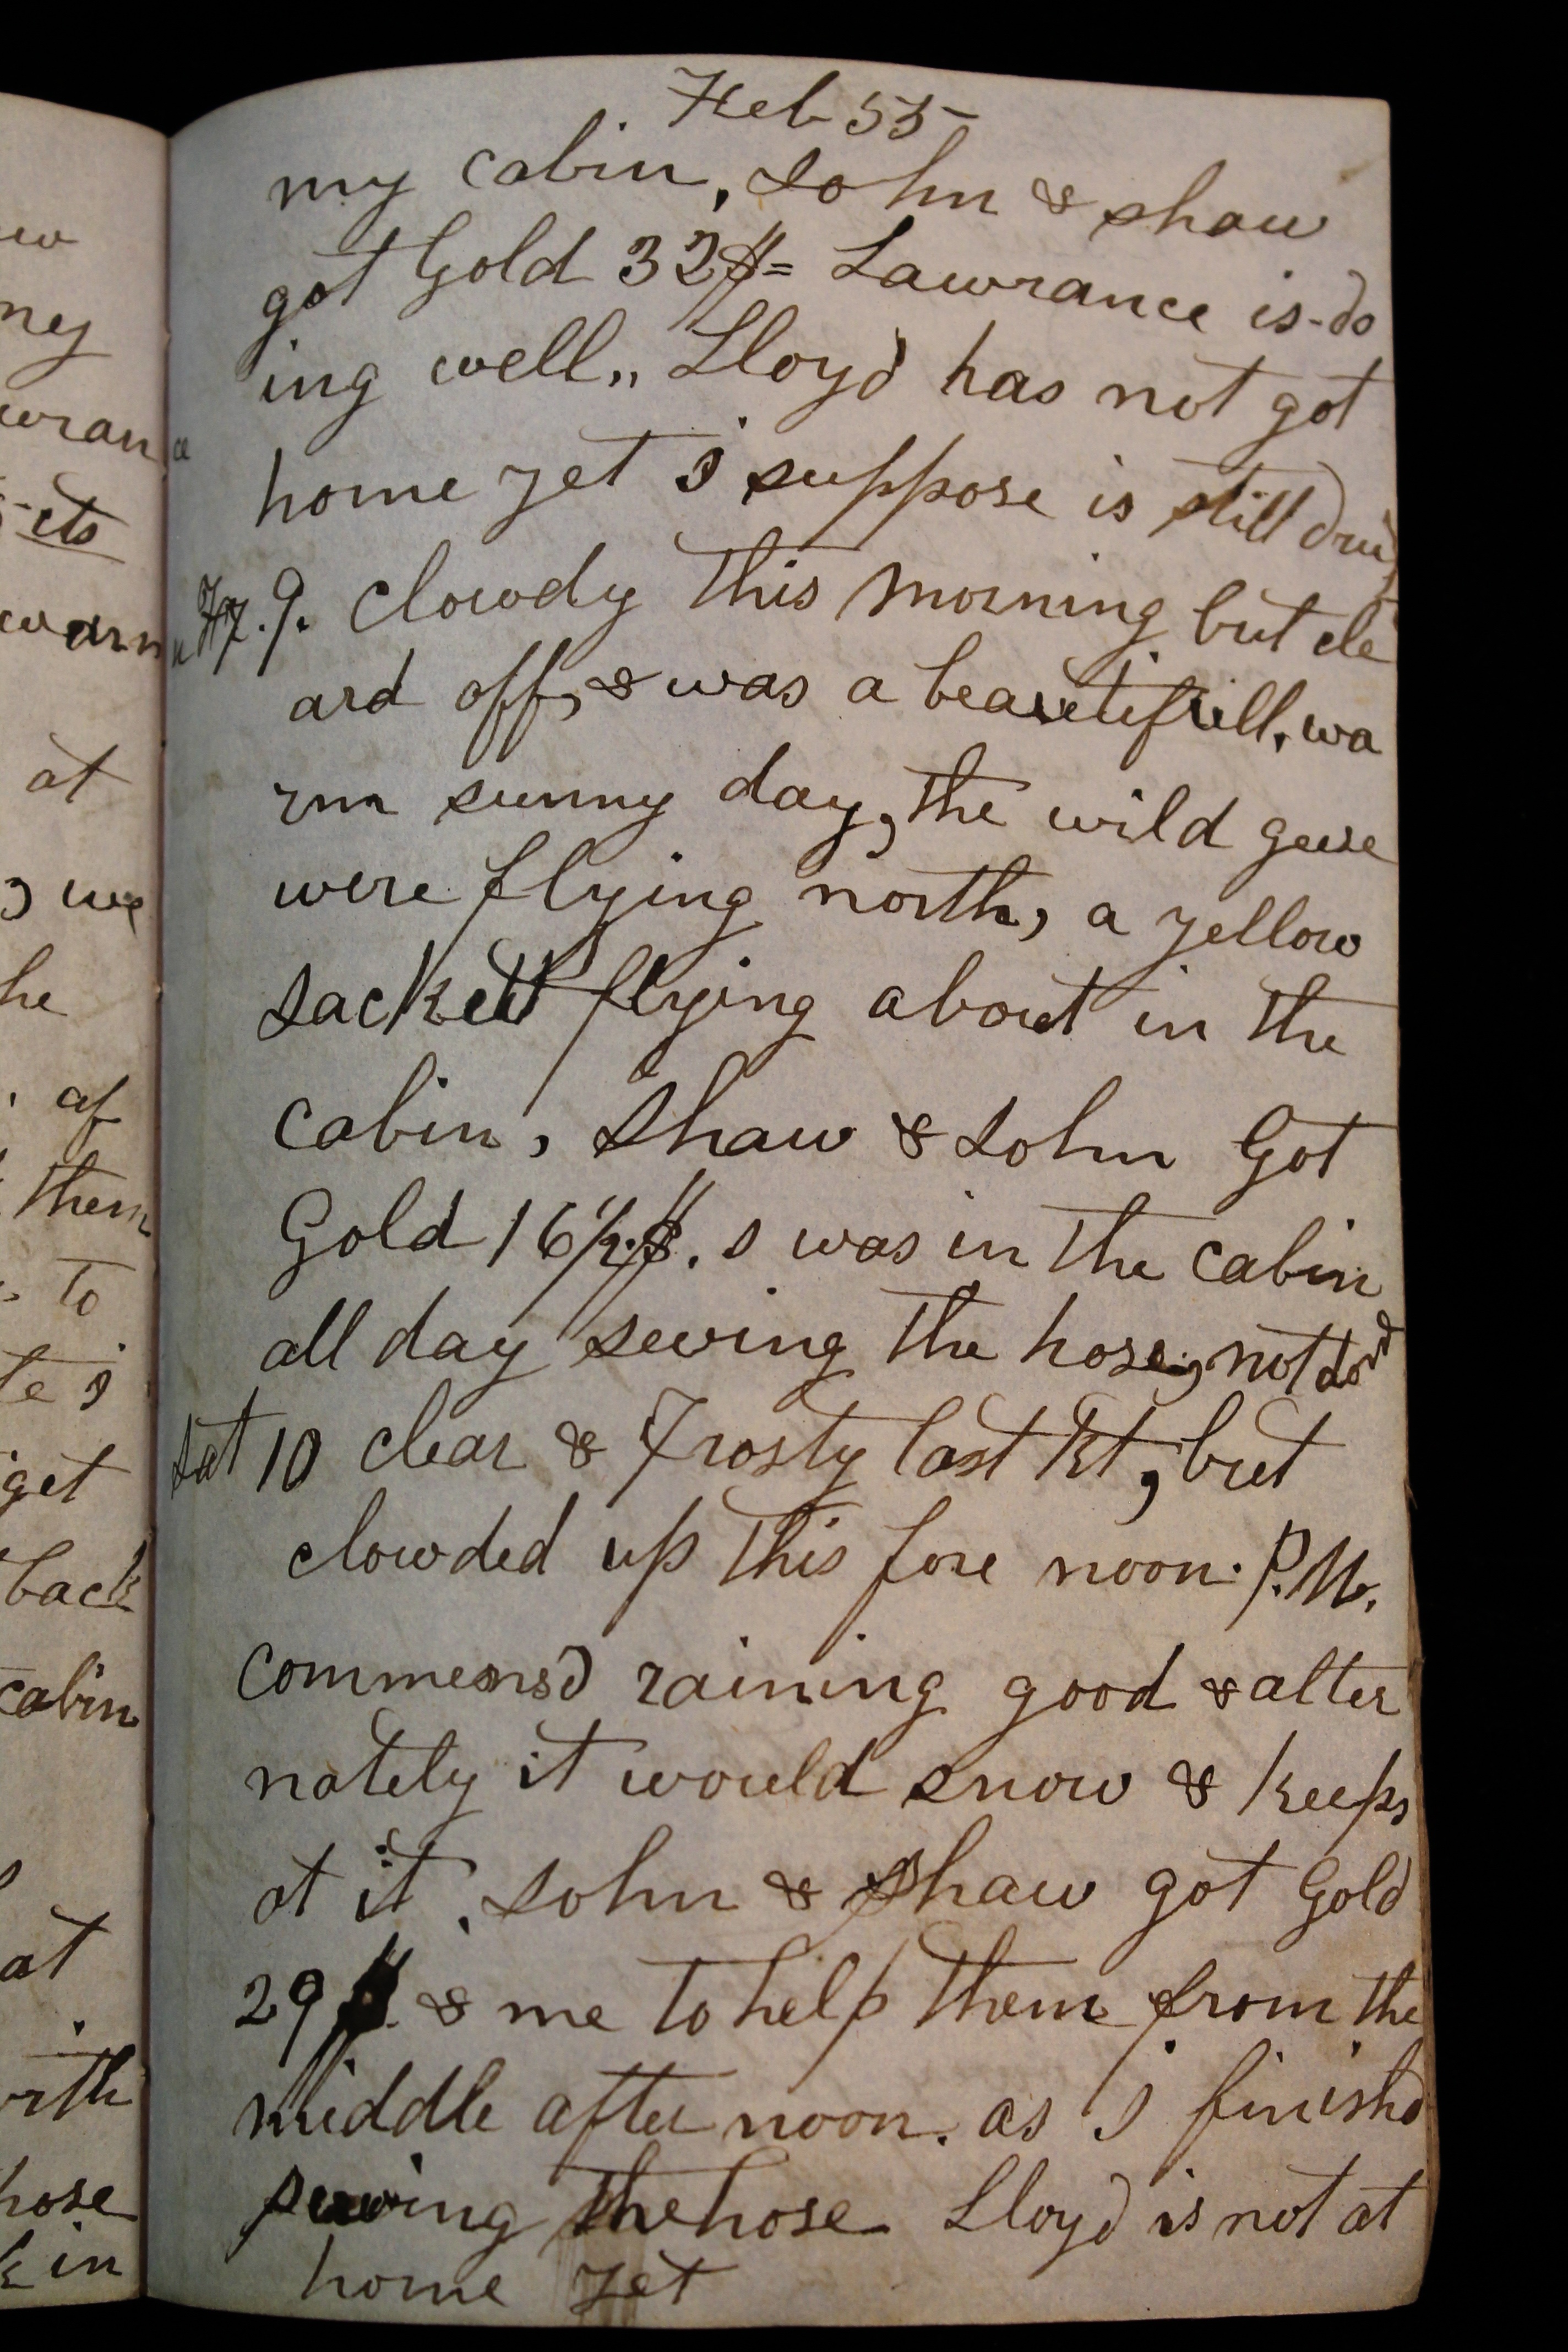 Feb 55
my cabin, John & Shaw
got Gold 32$= Lawrance is do
ing well,, Lloyd has not got
home yet I suppose is still
9. clowdy this morning but cle
ard off, & was a beautifull, wa
rm sunny day, the wild geese
were flying north, a yellow
Jackett flying about in the
cabin, Shaw & John Got
Gold 16½.$. I was in the cabin
all day sewing the hose, not
Sat 10 clear & Frosty last Nt, but
clowded up this fore noon. P.M.
commensd raining good & alter
nately it would snow & keeps
at it. John & Shaw got Gold
29 $. & me to help them from the
middle after noon. as I finishd
sewing the hose Lloyd is not at
home yet